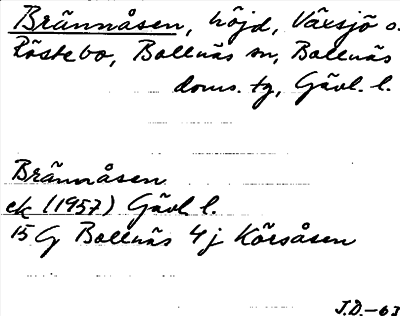 Brännåsen, höjd, Växsjö o.
Röstebo, Bollnäs sn, Bollnäs
doms. tg, Gävl. l.
Brännåsen
ek (1957) Gävl l.
15 G Bollnäs 4j Körsåsen
J.D.-63